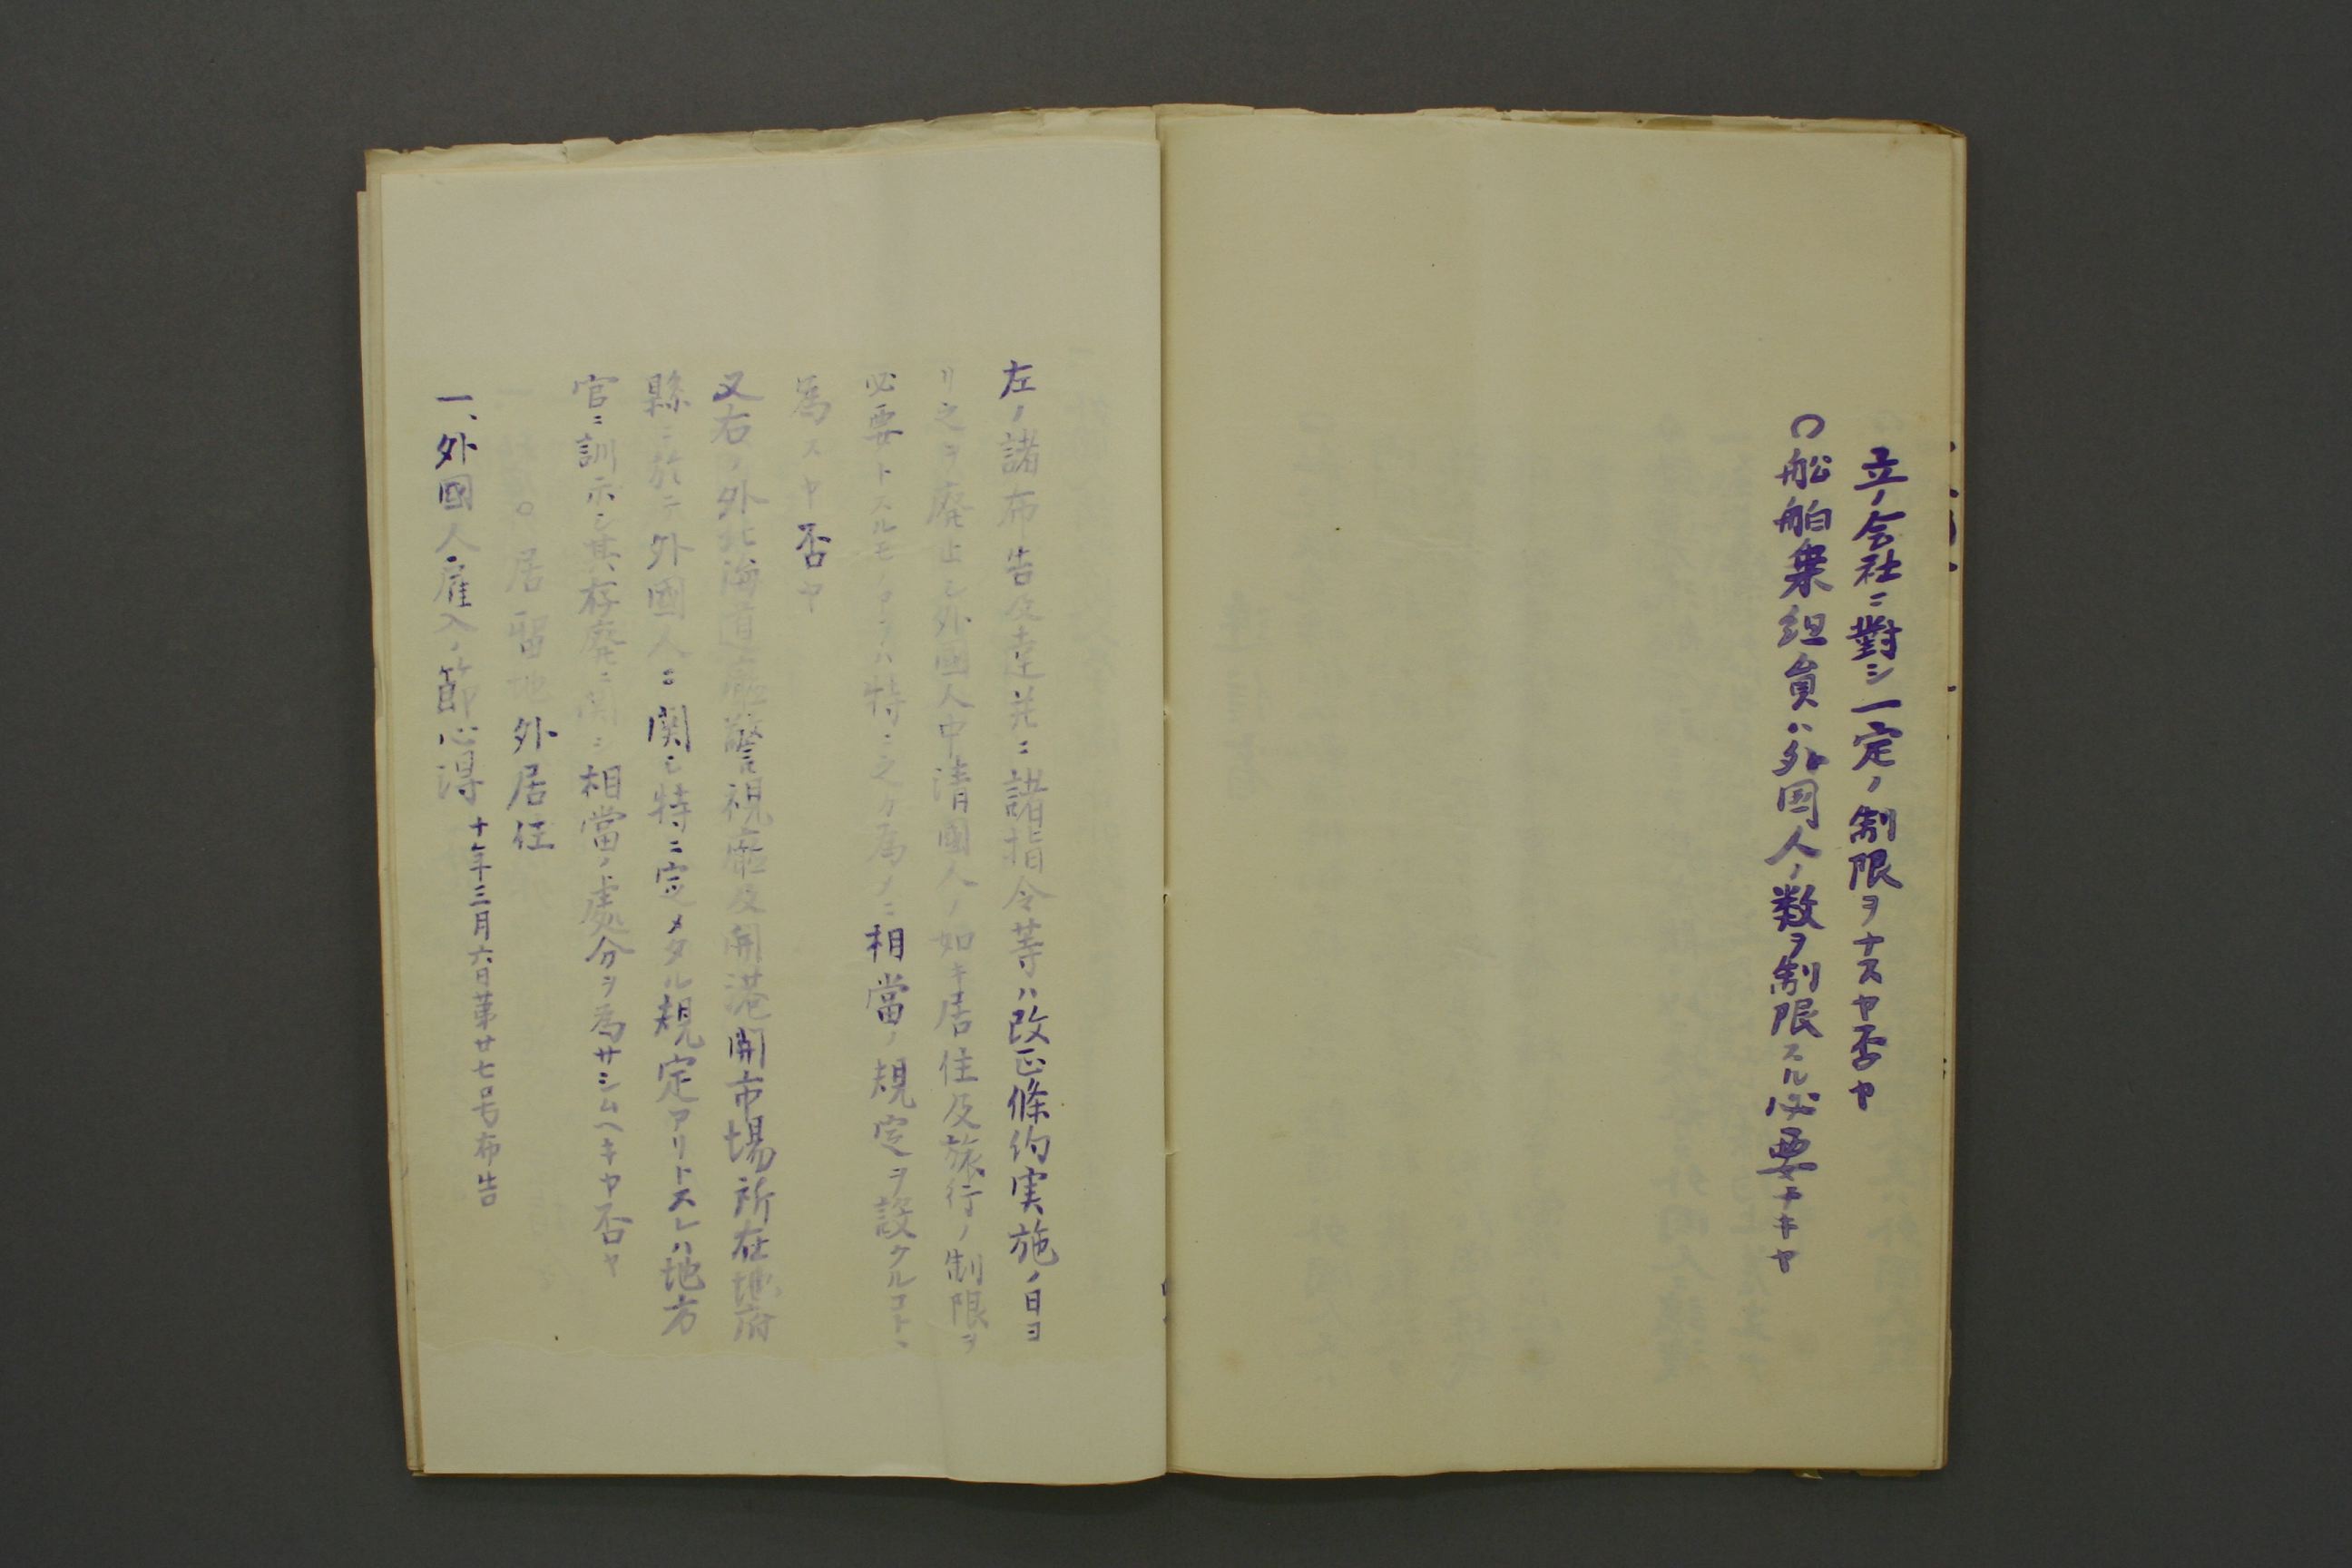 立ノ会社ニ對シ一定ノ制限ヲナスヤ否ヤ
○船舶乗組員ハ外国人ノ数ヲ制限スル必要ナキヤ
左ノ諸布告及達並ニ諸指令等ハ改正條約実施ノ日ヨ
リ之ヲ廃止シ外國人中清國人ノ如キ居住及旅行ノ制限ヲ
必要トスルモノアラハ特ニ之カ為メニ相當ノ規定ヲ設クルコトヽ
為スヤ否ヤ
又右ノ外北海道廳警視廳及開港開市場所在地府
縣ニ於テ外國人ニ関シ特ニ定メタル規定アリトスレハ地方
官ニ訓示シ其存廃ニ関シ相當ノ處分ヲ為サシムヘキヤ否ヤ
○居留地外居住
一、外國人雇入ノ節心得 十年三月六日第廿七号布告